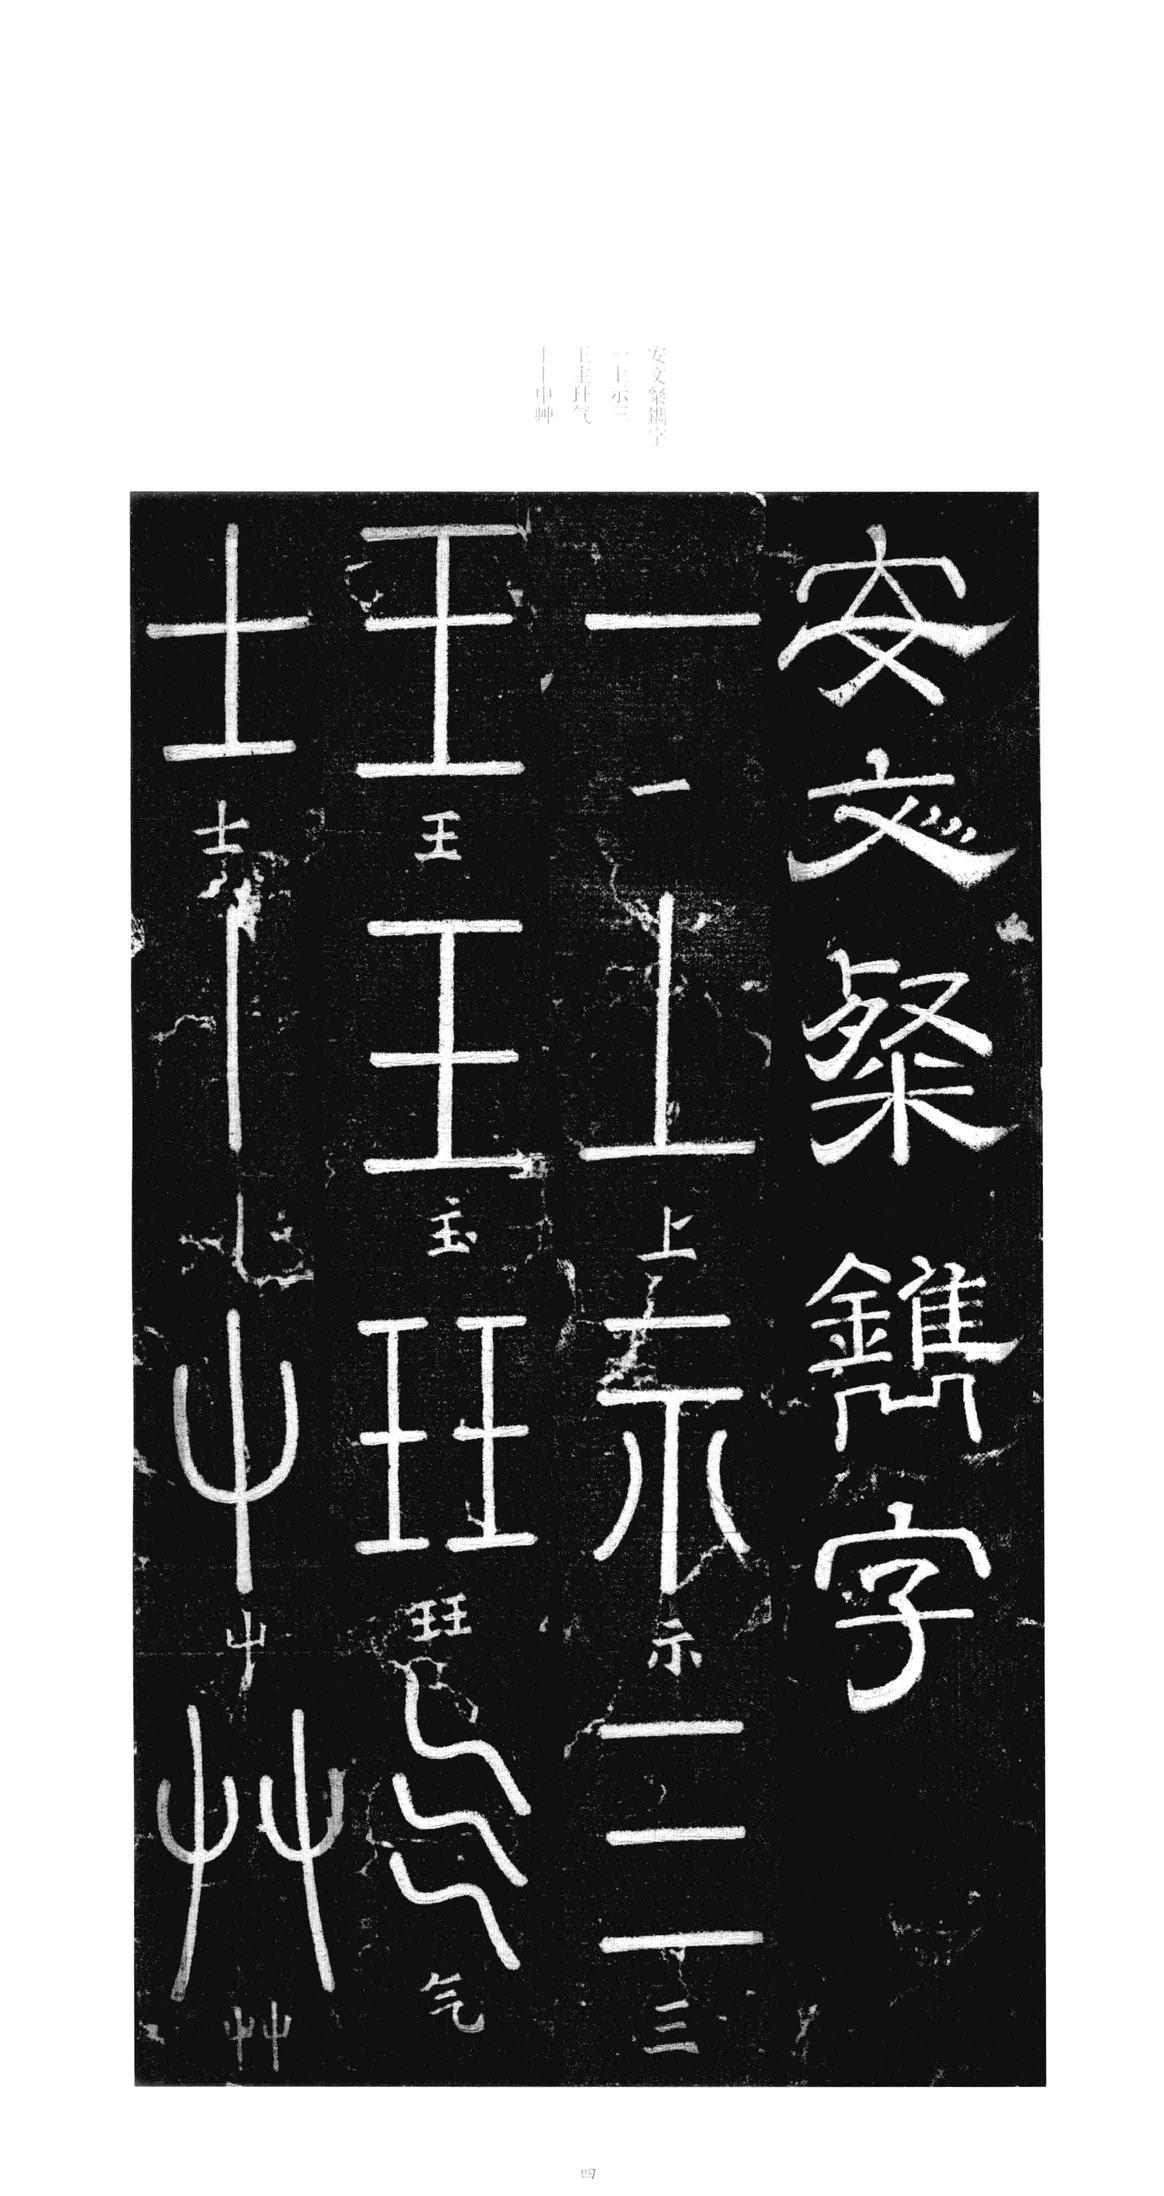 安文粲鐫字
一上示三
王玉玨气
士丨屮艸
安文粲鐫字
一一上上示示三三
王王玉玉玨玨气气
士士丨丨屮屮艸艸
四